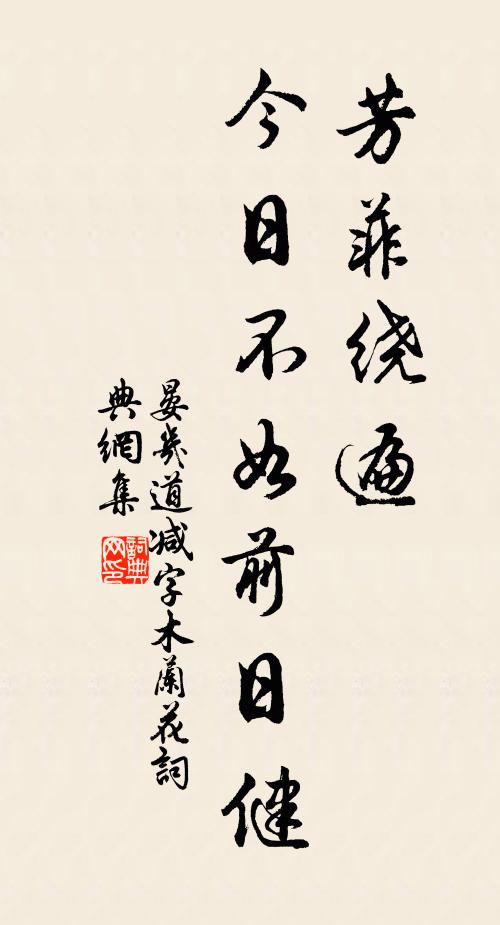 芳菲绕遍
今日不如前日健
晏幾道减字木蘭花詞
典網集
詞典网印